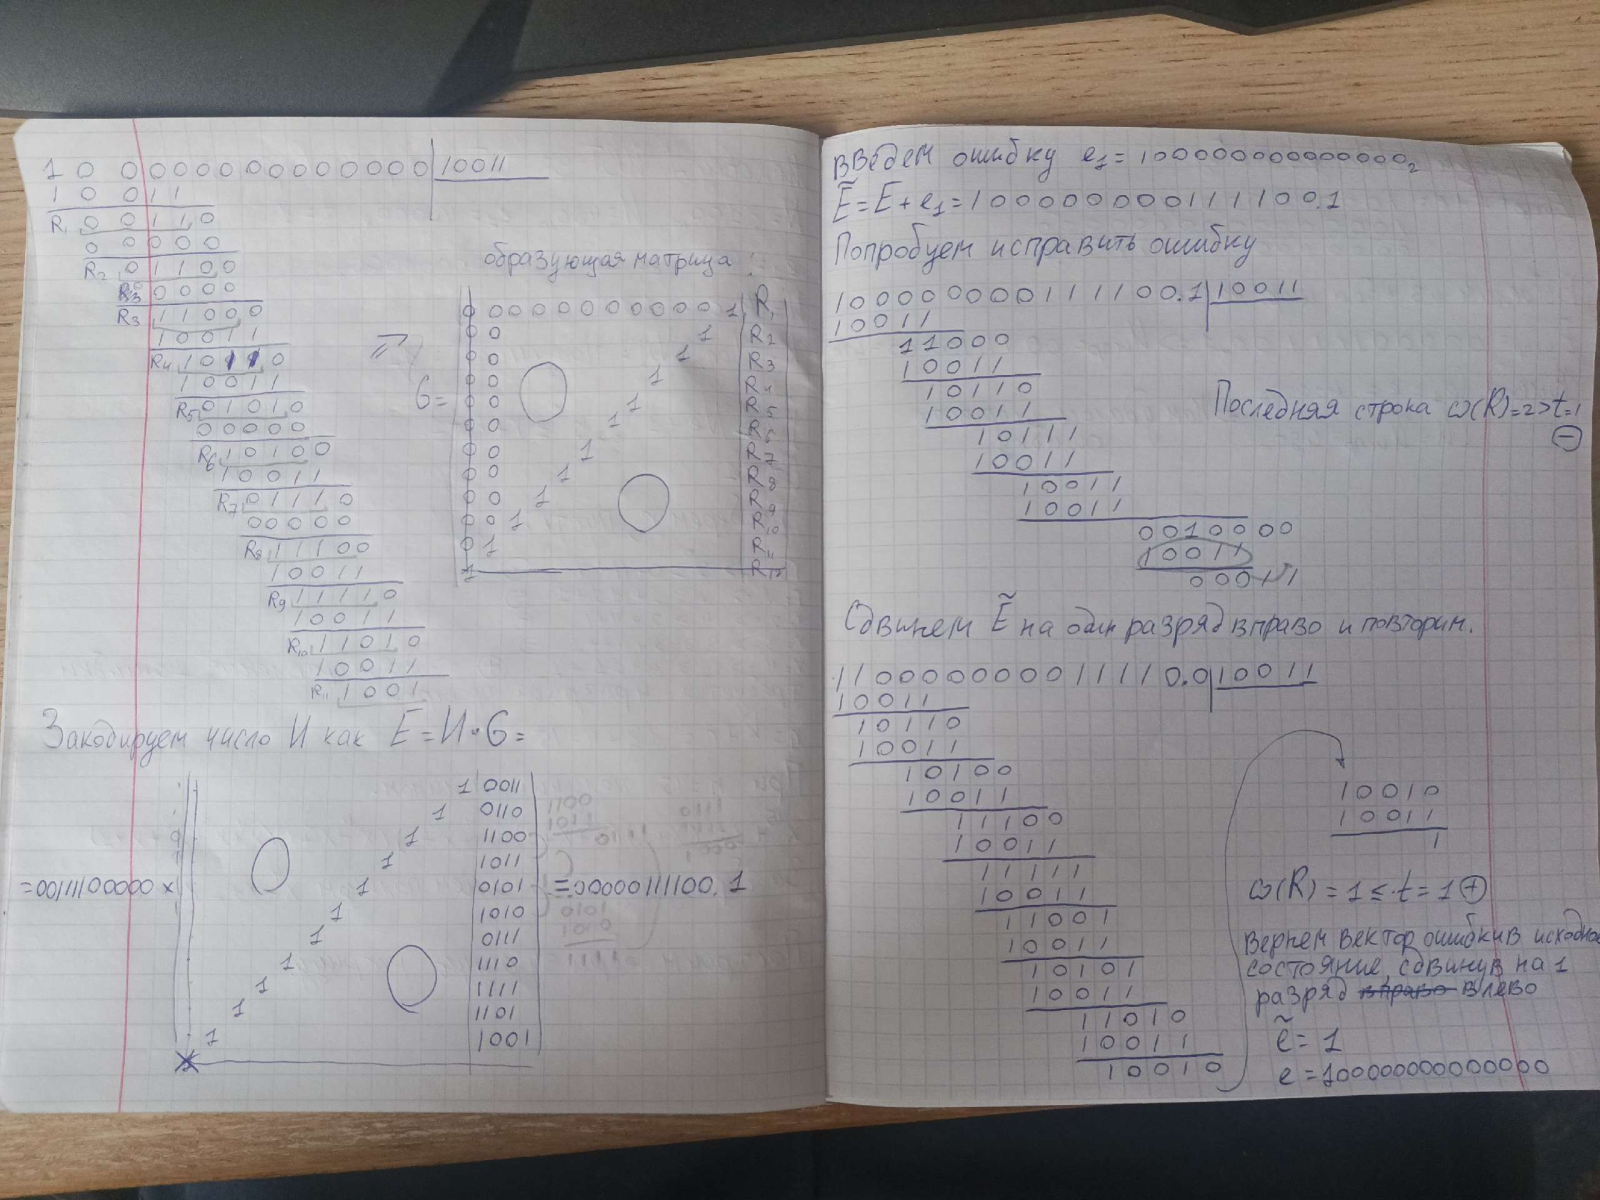 1 0 0 0 0 0 0 0 0 0 0 0 0 0 0 | 10011
1 0 0 1 1
R1 0 0 1 1 0
0 0 0 0 0
R2 0 1 1 0 0
0 0 0 0
R3 1 1 0 0 0
1 0 0 1 1
R4 1 0 1 1 0
1 0 0 1 1
R5 0 1 0 1 0
0 0 0 0 0
R6 1 0 1 0 0
1 0 0 1 1
R7 0 1 1 1 0
0 0 0 0 0
R8 1 1 1 0 0
1 0 0 1 1
R9 1 1 1 1 0
1 0 0 1 1
R10 1 1 0 1 0
1 0 0 1 1
R11 1 0 0 1
образующая матрица:
G=
0 0 0 0 0 0 0 0 0 0 0 1 R1
0 0 1 R2
0 0 1 R3
0 0 1 R4
0 0 1 R5
0 0 1 R6
0 0 1 R7
0 0 1 R8
0 0 1 R9
0 0 1 R10
0 1 R11
1 R12
Закодируем число И как E = И · G =
1 0011
1 0110
1 1100
1 1011
=00111100000 × 1 0101 =00000111100.1
1 1010
1 0111
1 1110
1 1111
1 1101
1 1001
Введем ошибку e1 = 1000000000000002
Ẽ = E + e1 = 1000000001111 00.1
Попробуем исправить ошибку
10000000011 1100.1 | 10011
10011
11000
10011
10110
10011
10111
10011
10011
10011
0010000
10011
00011
Последняя строка ω(R)=2>t=1
−
Сдвинем Ẽ на один разряд вправо и повторим.
110000000011110.0 | 10011
10011
10110
10011
10100
10011
11100
10011
11111
10011
11001
10011
10101
10011
11010
10011
10010
10010
10011
1
ω(R) = 1 ≤ t = 1 +
вернем вектор ошибки в исходное
состояние, сдвинув на 1
разряд влево
ẽ = 1
e = 100000000000000